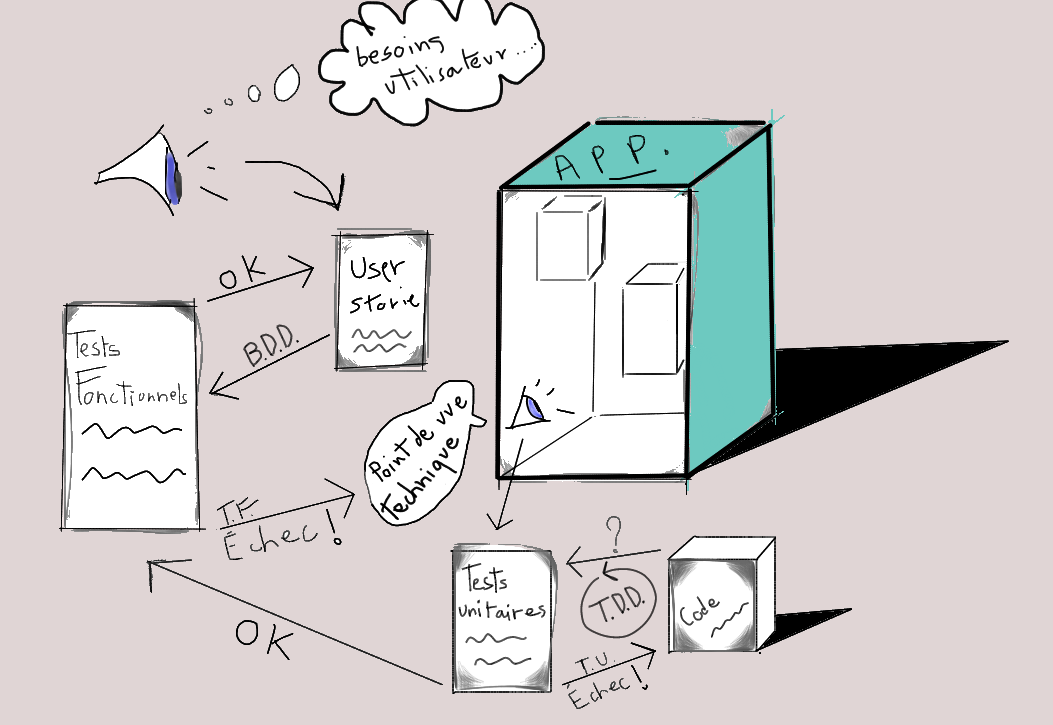 besoins
utilisateur....
APP.
OK
User
storie
B.D.D.
Tests
Fonctionnels
Point de vue
technique
T.F.
Échec!
?
T.D.D.
Tests
unitaires
Code
OK
T.U.
Échec!